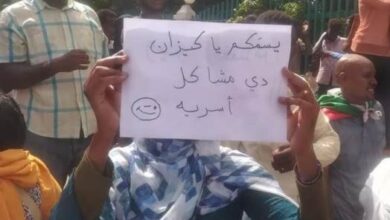 يستكم يا كيزان
دي مشاكل
أسريه